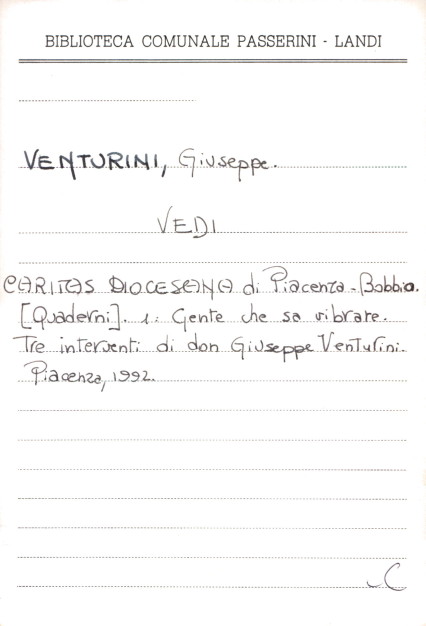 BIBLIOTECA COMUNALE PASSERINI - LANDI
VENTURINI, Giuseppe.
VEDI
CARITAS DIOCESANA di Piacenza-Bobbio.
[Quaderni]. 1: Gente che sa vibrare.
Tre interventi di don Giuseppe Venturini.
Piacenza, 1992.
C